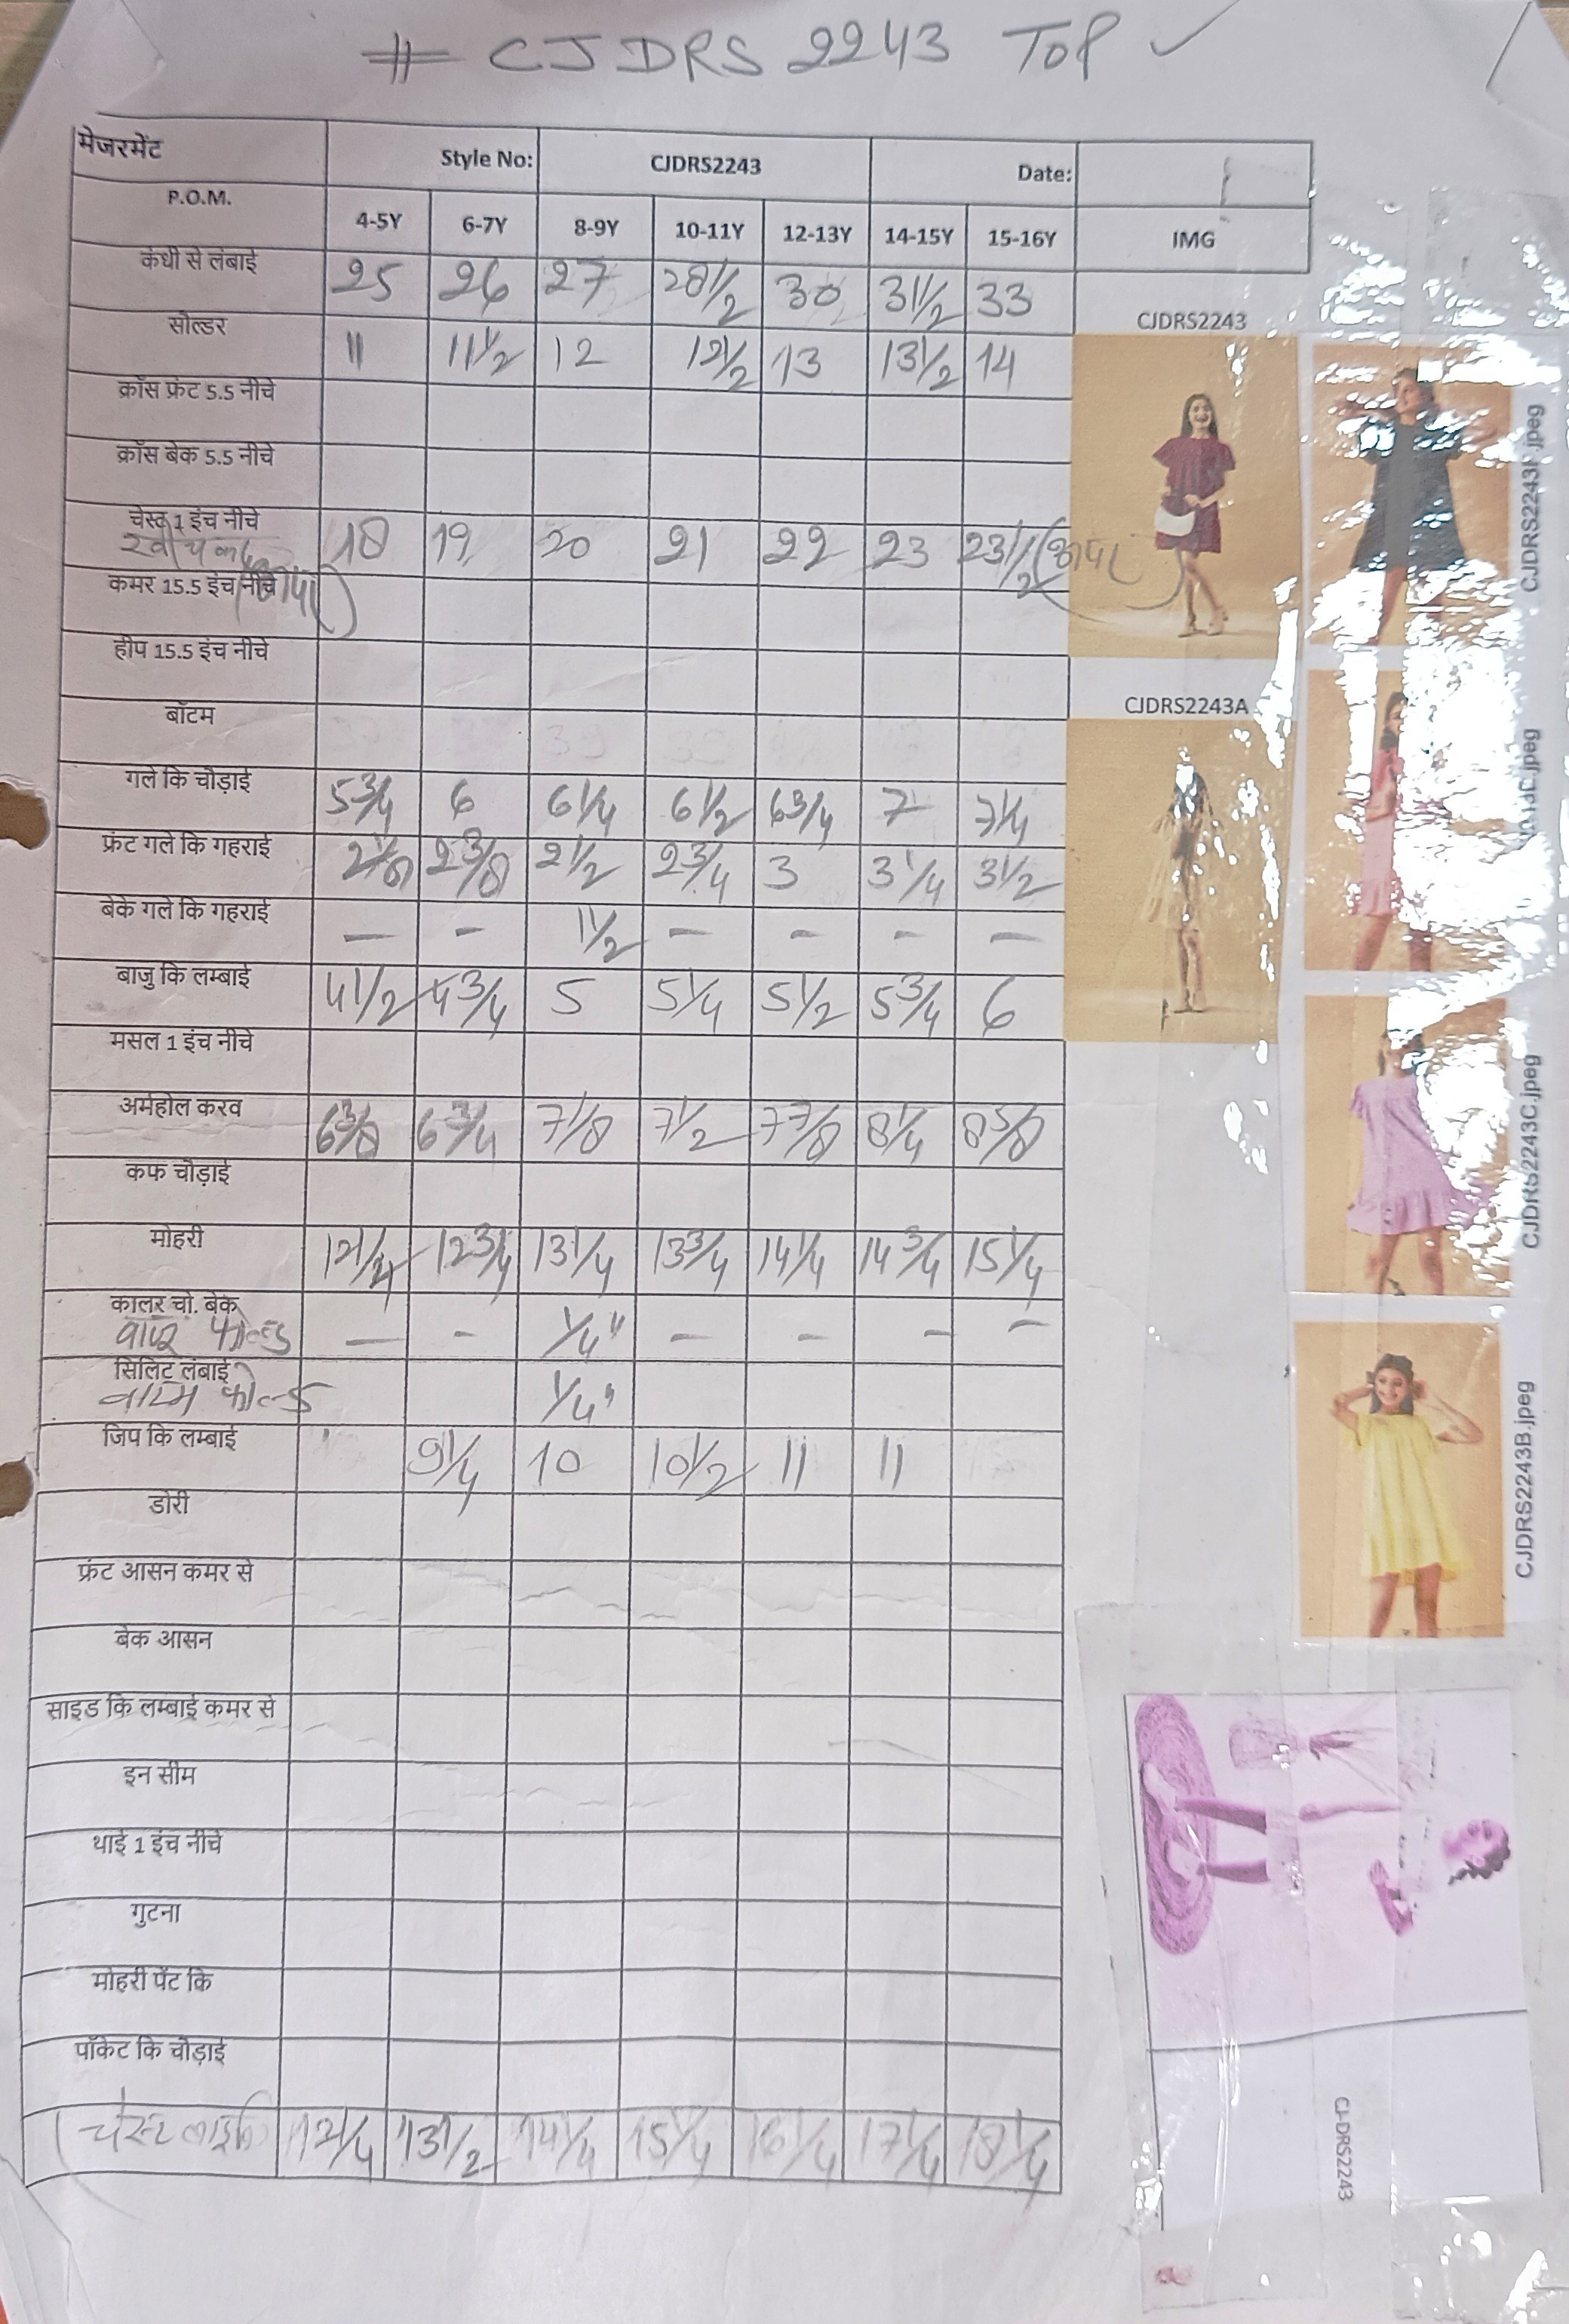 # CJDRS 2243 TOP ✓
मेजरमेंट Style No: CJDRS2243 Date:
P.O.M. 4-5Y 6-7Y 8-9Y 10-11Y 12-13Y 14-15Y 15-16Y IMG
कंधी से लंबाई 25 26 27 28 1/2 30 31 1/2 33
CJDRS2243
सोल्डर 11 11 1/2 12 12 1/2 13 13 1/2 14
क्रॉस फ्रंट 5.5 नीचे
क्रॉस बेक 5.5 नीचे
चेस्ट 1 इंच नीचे 18 19 20 21 22 23 23 1/2
कमर 15.5 इंच नीचे
हीप 15.5 इंच नीचे
CJDRS2243A
बॉटम
गले कि चौड़ाई 5 3/4 6 6 1/4 6 1/2 6 3/4 7 7 1/4
फ्रंट गले कि गहराई 2 1/8 2 3/8 2 1/2 2 3/4 3 3 1/4 3 1/2
बेके गले कि गहराई — - 1 1/2 - - - —
बाजु कि लम्बाई 4 1/2 4 3/4 5 5 1/4 5 1/2 5 3/4 6
मसल 1 इंच नीचे
अर्महोल करव 6 3/8 6 3/4 7 1/8 7 1/2 7 7/8 8 1/4 8 5/8
कफ चौड़ाई
मोहरी 12 1/4 12 3/4 13 1/4 13 3/4 14 1/4 14 3/4 15 1/4
कालर चो. बेक
— - 1/4" - - - -
सिलिट लंबाई
फोल्ड 1/4"
जिप कि लम्बाई 9 1/4 10 10 1/2 11 11
डोरी
फ्रंट आसन कमर से
बेक आसन
साइड कि लम्बाई कमर से
इन सीम
थाई 1 इंच नीचे
गुटना
मोहरी पेंट कि
पॉकेट कि चौड़ाई
चेस्ट 12 1/4 13 1/2 14 1/4 15 1/4 16 1/4 17 1/4 18 1/4
CJDRS2243C.jpeg
CJDRS2243B.jpeg
CJ-DRS2243